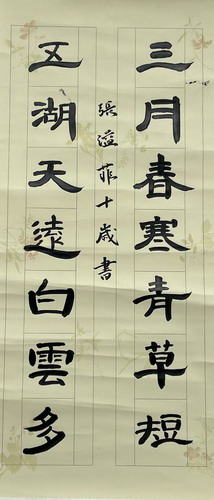 三月春寒青草短
五湖天遠白雲多
張溢菲十歲書